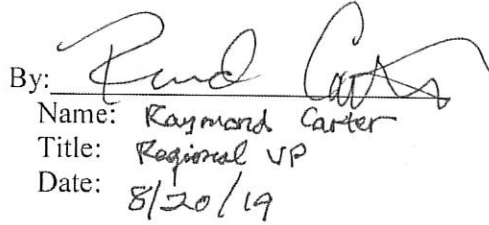 By: 
Name: Raymond Carter
Title: Regional VP
Date: 8/20/19